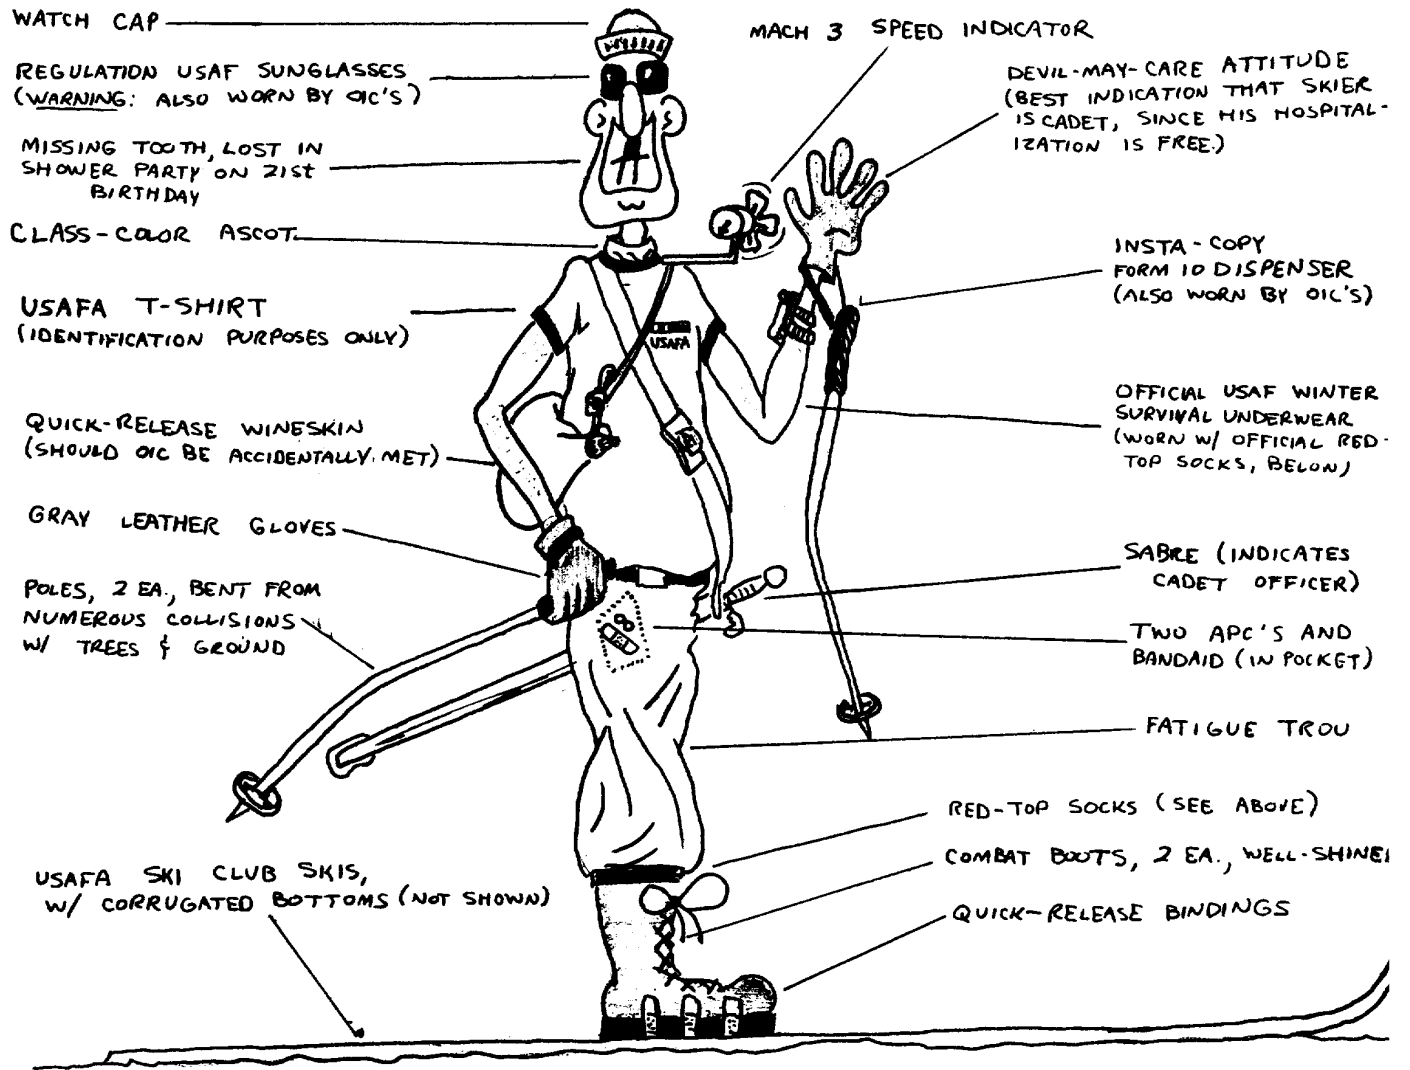 WATCH CAP
REGULATION USAF SUNGLASSES
(WARNING: ALSO WORN BY OIC'S)
MISSING TOOTH, LOST IN
SHOWER PARTY ON 21ST
BIRTHDAY
CLASS-COLOR ASCOT
USAFA T-SHIRT
(IDENTIFICATION PURPOSES ONLY)
QUICK-RELEASE WINESKIN
(SHOULD OIC BE ACCIDENTALLY MET)
GRAY LEATHER GLOVES
POLES, 2 EA., BENT FROM
NUMEROUS COLLISIONS
W/ TREES & GROUND
USAFA SKI CLUB SKIS,
W/ CORRUGATED BOTTOMS (NOT SHOWN)
USAFA
MACH 3 SPEED INDICATOR
DEVIL-MAY-CARE ATTITUDE
(BEST INDICATION THAT SKIER
IS CADET, SINCE HIS HOSPITAL-
IZATION IS FREE.)
INSTA-COPY
FORM 10 DISPENSER
(ALSO WORN BY OIC'S)
OFFICIAL USAF WINTER
SURVIVAL UNDERWEAR
(WORN W/ OFFICIAL RED-
TOP SOCKS, BELOW)
SABRE (INDICATES
CADET OFFICER)
TWO APC'S AND
BANDAID (IN POCKET)
FATIGUE TROU
RED-TOP SOCKS (SEE ABOVE)
COMBAT BOOTS, 2 EA., WELL-SHINE
QUICK-RELEASE BINDINGS